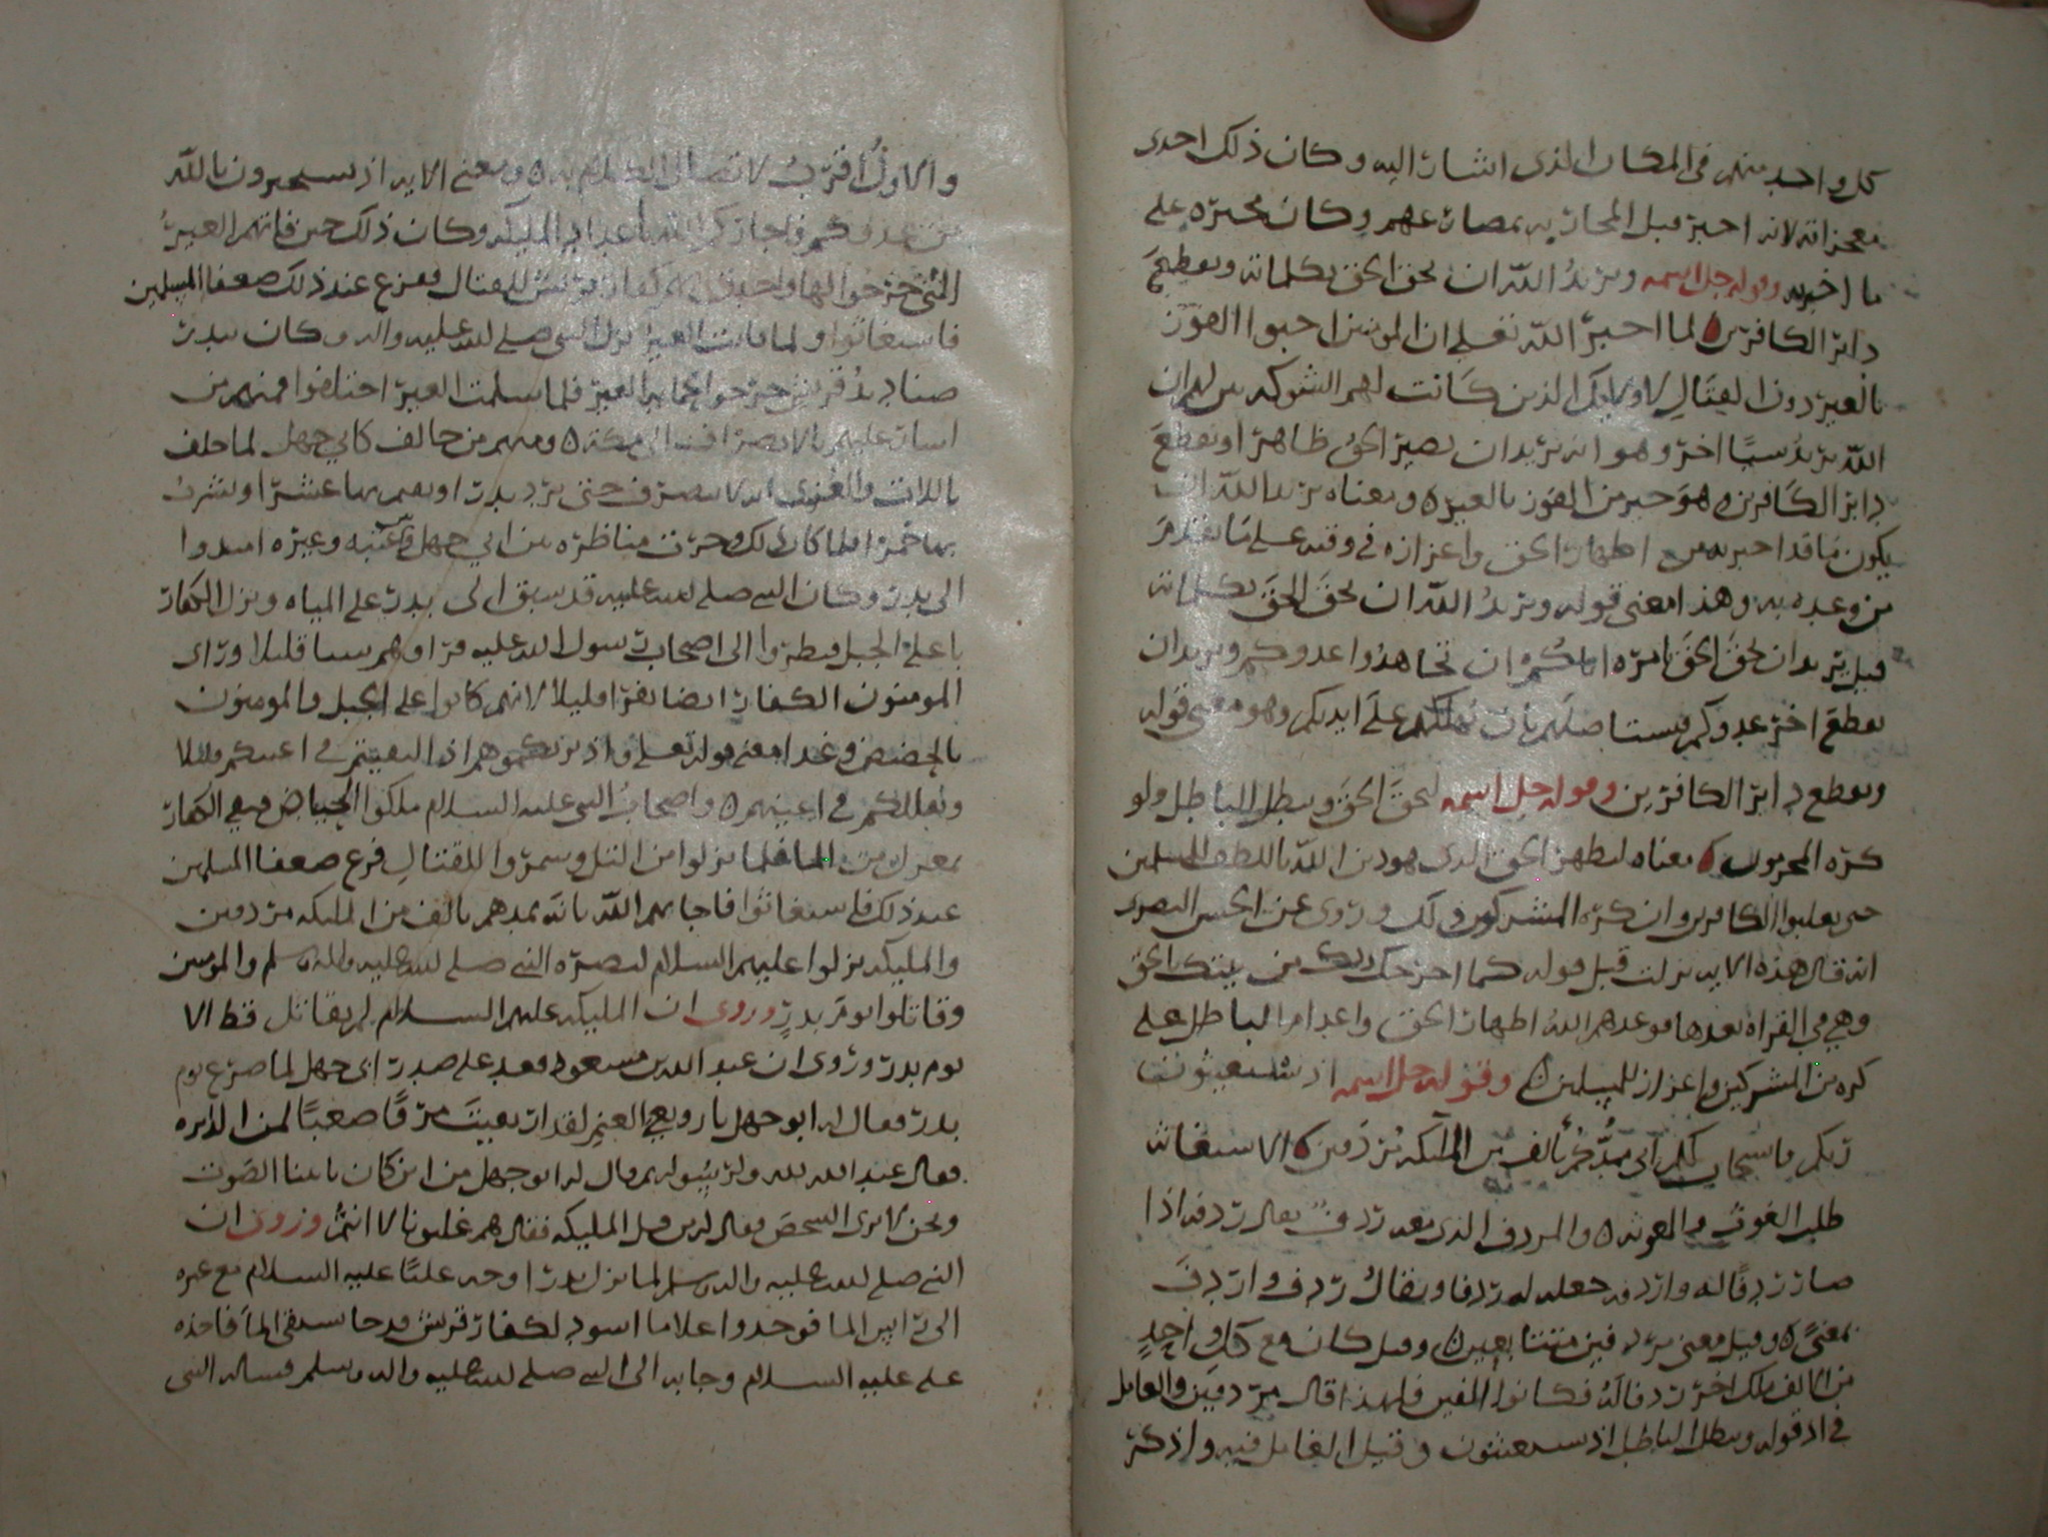 كل واحد منهم في المكان الذي اشار اليه وكان ذلك احدى
معجزاته لانه اخبر قبل المحاربه بمصارعهم وكان مخبره على
ما اخبر به وقوله جل اسمه ويريد الله ان يحق الحق بكلماته ويقطع
دابر الكافرين لما اخبر الله تعلى ان المومنين احبوا الفوز
بالعير دون القتال لاوليك الذين كانت لهم الشوكه بين لهم ان
الله يريد شيا اخر وهو انه يريد ان يصير الحق ظاهرا ويقطع
دابر الكافرين هو خير من الفوز بالعير ومعناه يريد الله ان
يكون ما قد اخبر به من اظهار الحق واعزازه في وقته على ما تقدم
من وعده به وهذا معنى قوله ويريد الله ان يحق الحق بكلماته
قيل يريد ان يحق الحق بامره اياكم ان تجاهدوا عدوكم ويريد ان
يقطع اخر عدوكم فيستاصلهم بان يهلكهم على ايديكم وهو معنى قوله
ويقطع دابر الكافرين وقوله جل اسمه ليحق الحق ويبطل الباطل ولو
كره المجرمون معناه ليظهر الحق الذي هو دين الله باللطف للمسلمين
حتى يغلبوا الكافرين وان كره المشركون ذلك وروى عن الحسن البصرى
انه قال هذه الايه نزلت قبل قوله كما اخرجك ربك من بيتك بالحق
وهي في القراه بعدها فوعدهم الله اظهار الحق واعدام الباطل على
كره من المشركين واعزاز للمسلمين وقوله جل اسمه اذ تستغيثون
ربكم فاستجاب لكم اني ممدكم بالف من الملىكه مردفين الاستغاثه
طلب الغوث والمعونه والمردف الذي بعد ردف يقال ردفه اذا
صار ردفا له واردفه جعله له ردفا ويقال ردف واردف
بمعنى وقيل معنى مردفين متتابعين وقيل كان مع كل واحد
من الالف ملك اخر ردفا له فكانوا الفين فلهذا قال مردفين والعامل
في اذ قوله ويبطل الباطل اذ تستغيثون وقيل العامل فيه واذكر
والاول اقرب لاتصال الكلام به ومعنى الايه اذ تستجيرون بالله
من عدوكم فاجاركم الله باعداد المليكه وكان ذلك حين فاتهم العير
التي خرجوا لها واحدق بهم كفار قريش للقتال ففزع عند ذلك ضعفا المسلمين
فاستغاثوا ولما فاتت العير نزل النبي صلى الله عليه واله وكان ببدر
صناديد قريش خرجوا لحمايه العير فلما سلمت العير اختلفوا فمنهم من
اشار عليهم بالانصراف الى مكه ومنهم من خالف كابي جهل لما حلف
باللات والعزى انه لا ينصرف حتى يرد بدرا ويقيم بها عشرا ويشرب
بها خمرا فلما كان ذلك وجرت مناظره بين ابي جهل وعتبه وغيره
الى بدر وكان النبي صلى الله عليه قد سبق الى بدر على المياه ونزل الكفار
باعلى الجبل فنظروا الى اصحاب رسول الله عليه فراوهم شيا قليلا وراى
المومنون الكفار ايضا نفرا قليلا لانهم كانوا على الجبل والمومنون
بالحضيض وهذا معنى قوله تعلى واذ يريكموهم اذ التقيتم في اعينكم قليلا
ويقللكم في اعينهم واصحاب النبي عليه السلام ملكوا الحياض فبقي الكفار
بمعزل من الما فلما نزلوا من التل وشمروا للقتال فزع ضعفا المسلمين
عند ذلك فاستغاثوا فاجابهم الله بانه يمدهم بالف من المليكه مردفين
والمليكه نزلوا عليهم السلام لنصره النبي صلى الله عليه واله وسلم والمومنين
وقاتلوا يوم بدر وروي ان المليكه عليهم السلام لم يقاتل قط الا
يوم بدر وروى ان عبد الله بن مسعود قعد على صدر ابي جهل لما صرع يوم
بدر فقال له ابو جهل يا رويعي الغنم لقد ارتقيت مرقا صعبا لمن الدبره
فقال عبد الله لله ولرسوله ثم قال له ابو جهل من اين كان ياتينا الصوت
ونحن لا نرى الشخص فقال له من قبل المليكه فقال هم غلبونا لا انتم وروي ان
النبي صلى الله عليه واله وسلم لما نزل بدرا وجه عليا عليه السلام مع غيره
الى الما فوجدوا غلاما اسود لكفار قريش قد جا يستقي الما فاخذه
علي عليه السلام وجا به الى النبي صلى الله عليه واله وسلم فساله النبي